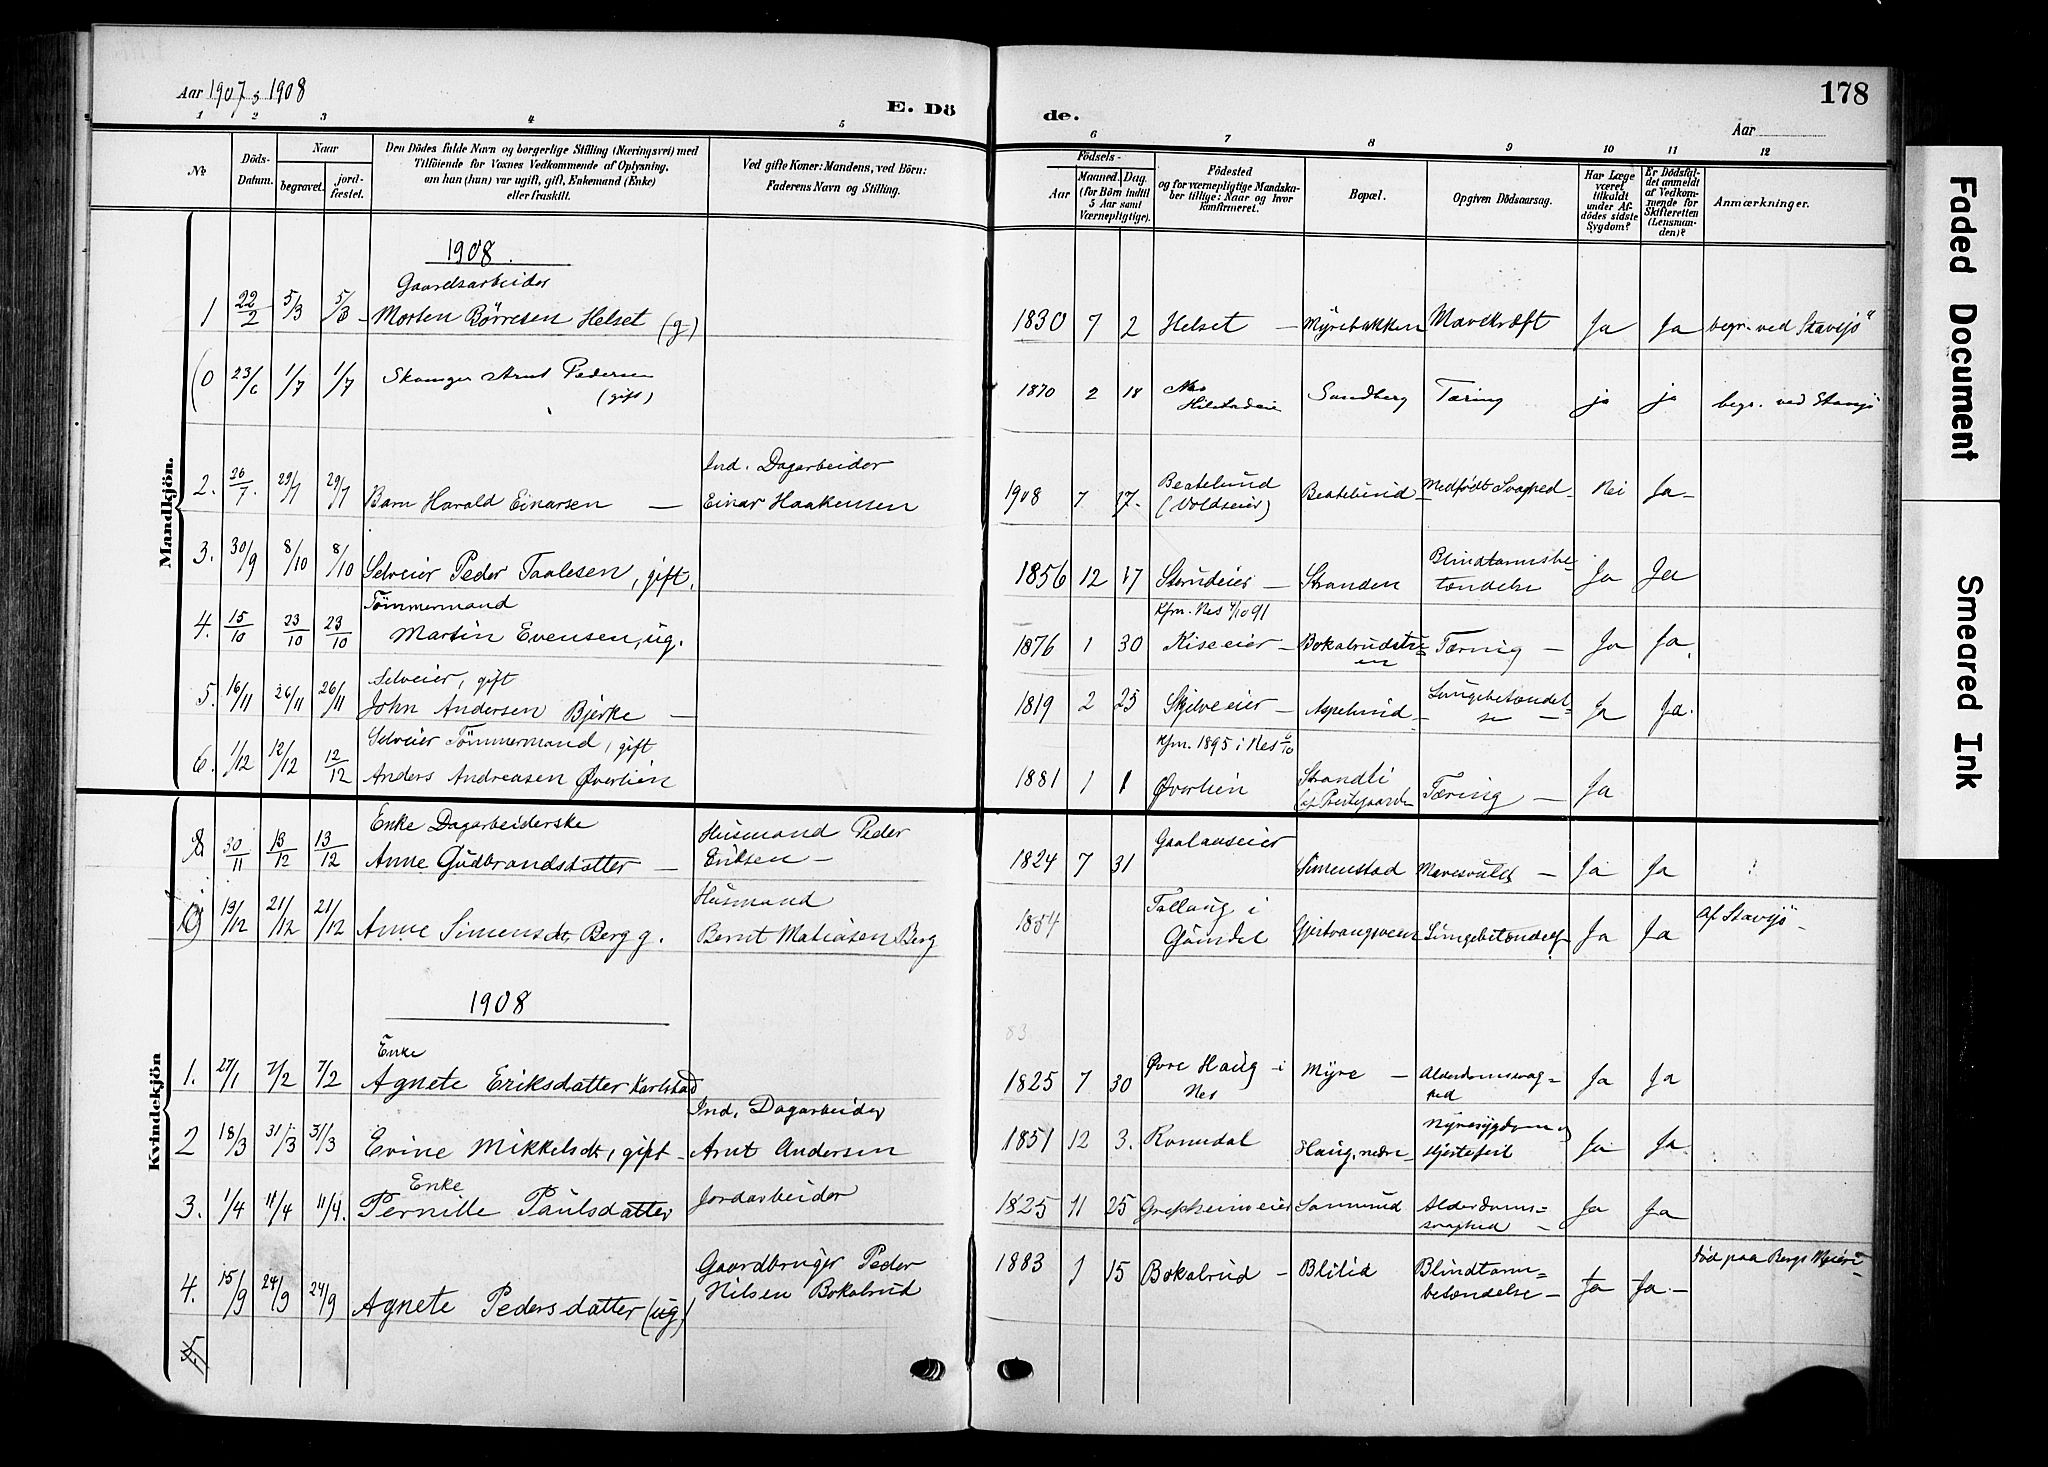 Aar 1907 & 1908
E. Dö
de.
178
Aar
1
2
3
4
5
6
7
8
9
10
11
12
No
Döds-
Datum.
Naar
begravet.
jord-
fæstet.
Den Dödes fulde Navn og borgerlige Stilling (Næringsvei) med
Tilföiende for Voxnes Vedkommende af Oplysning,
om han (hun) var ugift, gift, Enkemand (Enke)
eller fraskilt.
Ved gifte Koner: Mandens, ved Börn:
Faderens Navn og Stilling.
Födsels-
Aar
Maaned.
Dag.
(for Börn indtil
5 Aar samt
Værnepligtige).
Födested
og for værnepligtige Mandska-
ber tillige: Naar og hvor
konfirmeret.
Bopæl.
Opgiven Dödsaarsag.
Har Læge
været
tilkaldt
under Af-
dödes sidste
Sygdom?
Er Dödsfal-
det anmeldt
af Vedkom-
mende for
Skifteretten
(Lensman-
den)?
Anmærkninger.
Mandkjön.
1908.
Gaardsarbeider
1 22/2 5/3 5/3 Morten Börresen Helset (g) 1830 7 2 Helset — Myrebakken Mavekræft Ja Ja begr. ved Stavsjö
(0 23/6 1/7 1/7 Arnt Pedersen
(gift) 1870 2 18 Nes Sandberg Tæring ja ja begr. ved Stavsjö
Ind. Dagarbeider
2. 26/7. 29/7 29/7 Barn Harald Einarsen — Einar Haakensen 1908 7 17. Beatelund
(Voldseier) Beatelund Medfödt Svaghed Nei Ja
3. 30/9 8/10 8/10 Selveier Peder Taalesen, gift. 1856 12 17 Strandeier — Stranden Blindtarmsbe-
tændelse Ja Ja
Tömmermand
4. 15/10 23/10 23/10 Martin Evensen, ug. Kfm. Nes 4/10 91
1876 1 30 Kiseeier — Tæring — Ja Ja
Selveier, gift
5. 16/11 26/11 26/11 John Andersen Bjerke — 1819 2 25 Skjelveeier — Aspelund Lungebetændel-
se — Ja Ja.
Selveier Tömmermand, gift
6. 1/12 12/12 12/12 Anders Andreasen Överlien Kfm. 1895 i Nes 6/10
1881 1 1 Överlien Strandli
(af Prestegaarden Tæring — Ja
Kvindekjön
Enke Dagarbeiderske
30/11 13/12 13/12 Anne Gudbrandsdatter — Husmand Peder
Eriksen — 1824 7 31 Gaalaaseier Simenstad Ja Ja
Husmand
19/12 21/12 21/12 Anne Simensdt, Berg g. Bernt Matiasen Berg 1854 Follaug i
Gausdal Gjestvangsveen Lungebetændelse Ja Ja Af Stavsjö
1908
83
Enke
1. 27/1 7/2 7/2 Agnete Eriksdatter Karlstad 1825 7 30 Övre Haug i
Nes Myre — Alderdomssvag-
hed Ja Ja
Ind. Dagarbeider
2 18/3 31/3 31/3 Evine Mikkelsdt, gift — Arnt Andersen 1851 12 3. Romedal Haug, nedre Nyresygdom og
Hjertefeil Ja Ja
Enke
3. 1/4 11/4 11/4. Pernille Paulsdatter Jordarbeider 1825 11 25 Grefsheimeier Alderdoms-
svaghed Ja Ja
4. 15/9 24/9 24/9 Agnete Pedersdatter (ug) Gaardbruger Peder
Nilsen Bokalrud 1883 1 15 Bokalrud — Blilid Blindtarm-
betændelse — Ja Ja — Död paa Bergs Meieri
5.
Faded Document
Smeared Ink